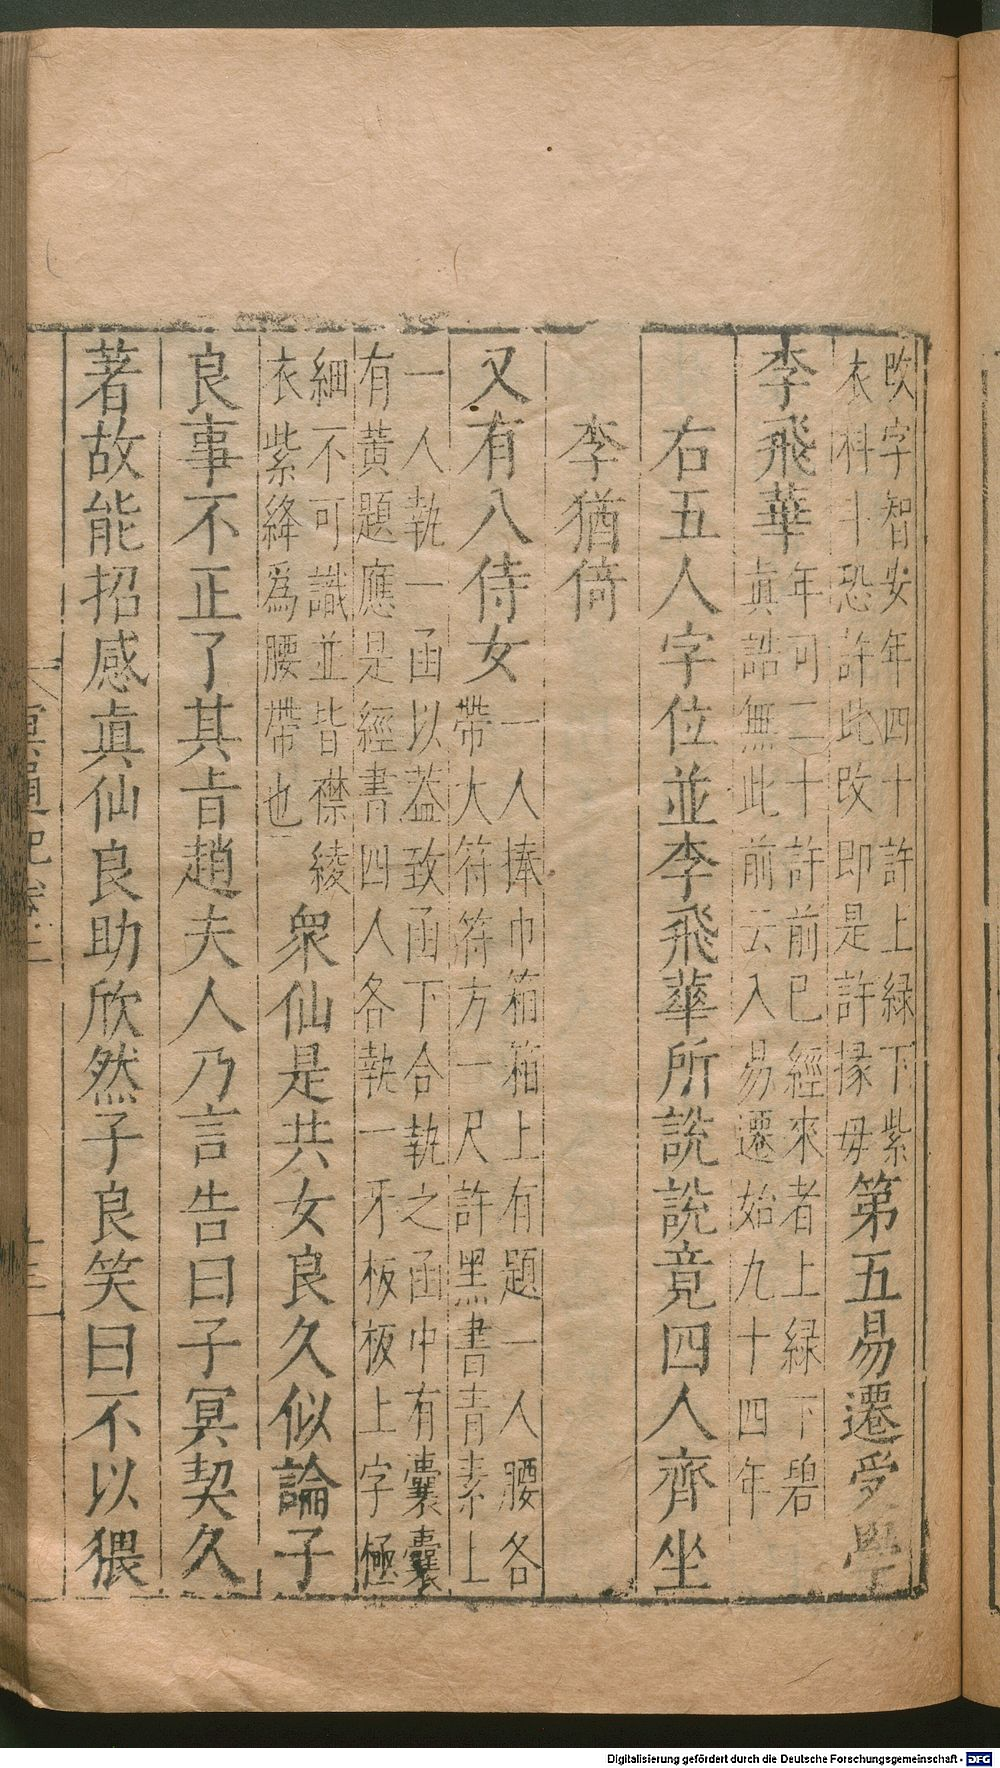 改字智安年四十許上緑下紫
衣科斗恐許此改即是許掾毋第五易遷受學
李飛華年可二十許前已經來者上緑下碧
真誥無此前云入易遷始九十四年
右五人字位並李飛華所說說竟四人齊坐
李猶倚
又有八侍女一人捧巾箱箱上有題一人腰各
帶大符符方一尺許黑書青素上
一人執一函以葢致函下合執之函中有囊囊
有黃題應是經書四人各執一牙板板上字極
細不可識並皆襟綾
衣紫絳為腰帶也衆仙是共女良久似論子
良事不正了其旨趙夫人乃言告曰子冥契久
著故能招感真仙良助欣然子良笑曰不以猥
冥通記卷二
Digitalisierung gefördert durch die Deutsche Forschungsgemeinschaft - DFG